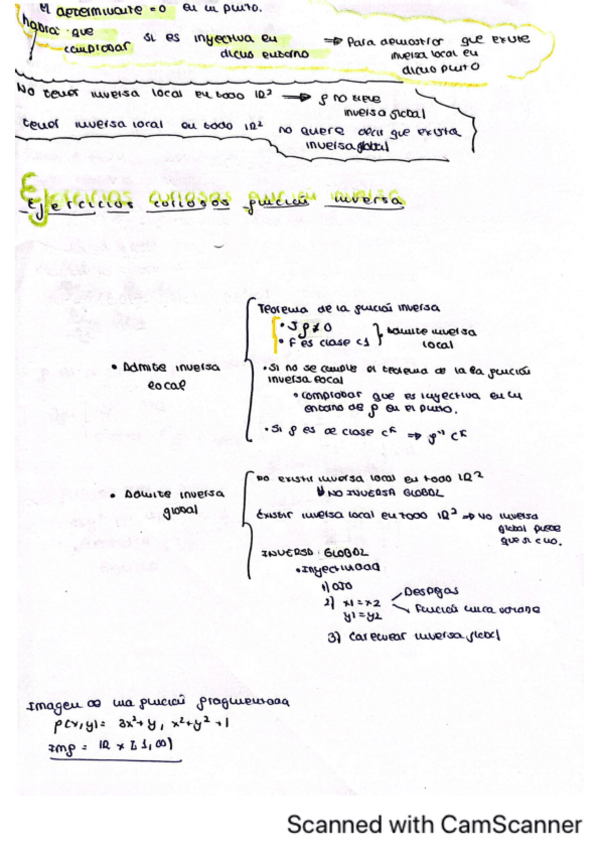 el determinante = 0 en un punto.
habrá que comprobar si es inyectiva en dicho entorno ⇒ Para demostrar que existe inversa local en dicho punto
No tener inversa local en todo ℝ² → f no tiene inversa global
tener inversa local en todo ℝ² no quiere decir que exista inversa global
Ejercicios curiosos función inversa
Ejercicios curiosos función inversa
Teorema de la función inversa
• Jf ≠ 0
• F es clase C1 } Admite inversa local
• Admite inversa local
• Si no se cumple el teorema de la función inversa local
• comprobar que es inyectiva en un entorno de f en el punto.
• Si f es de clase Cᴷ ⇒ f⁻¹ Cᴷ
• Admite inversa global
No existir inversa local en todo ℝ²
⇓ NO INVERSA GLOBAL
Existir inversa local en todo ℝ² ⇒ No inversa global puede que si o no.
INVERSA GLOBAL
• Inyectividad
1) OJO
2) x1 = x2
y1 = y2
Despejas
Función
3) Calcular inversa global
Imagen de una función
f(x,y) = 3x²+y, x²+y²+1
Imf = ℝ x [1,∞)
Scanned with CamScanner